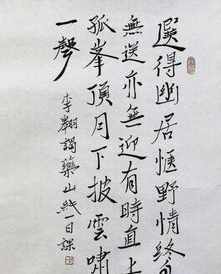 選得幽居愜野情終
無送亦無迎有時直上
孤峯頂月下披雲嘯
一聲
李翱謁藥山日課